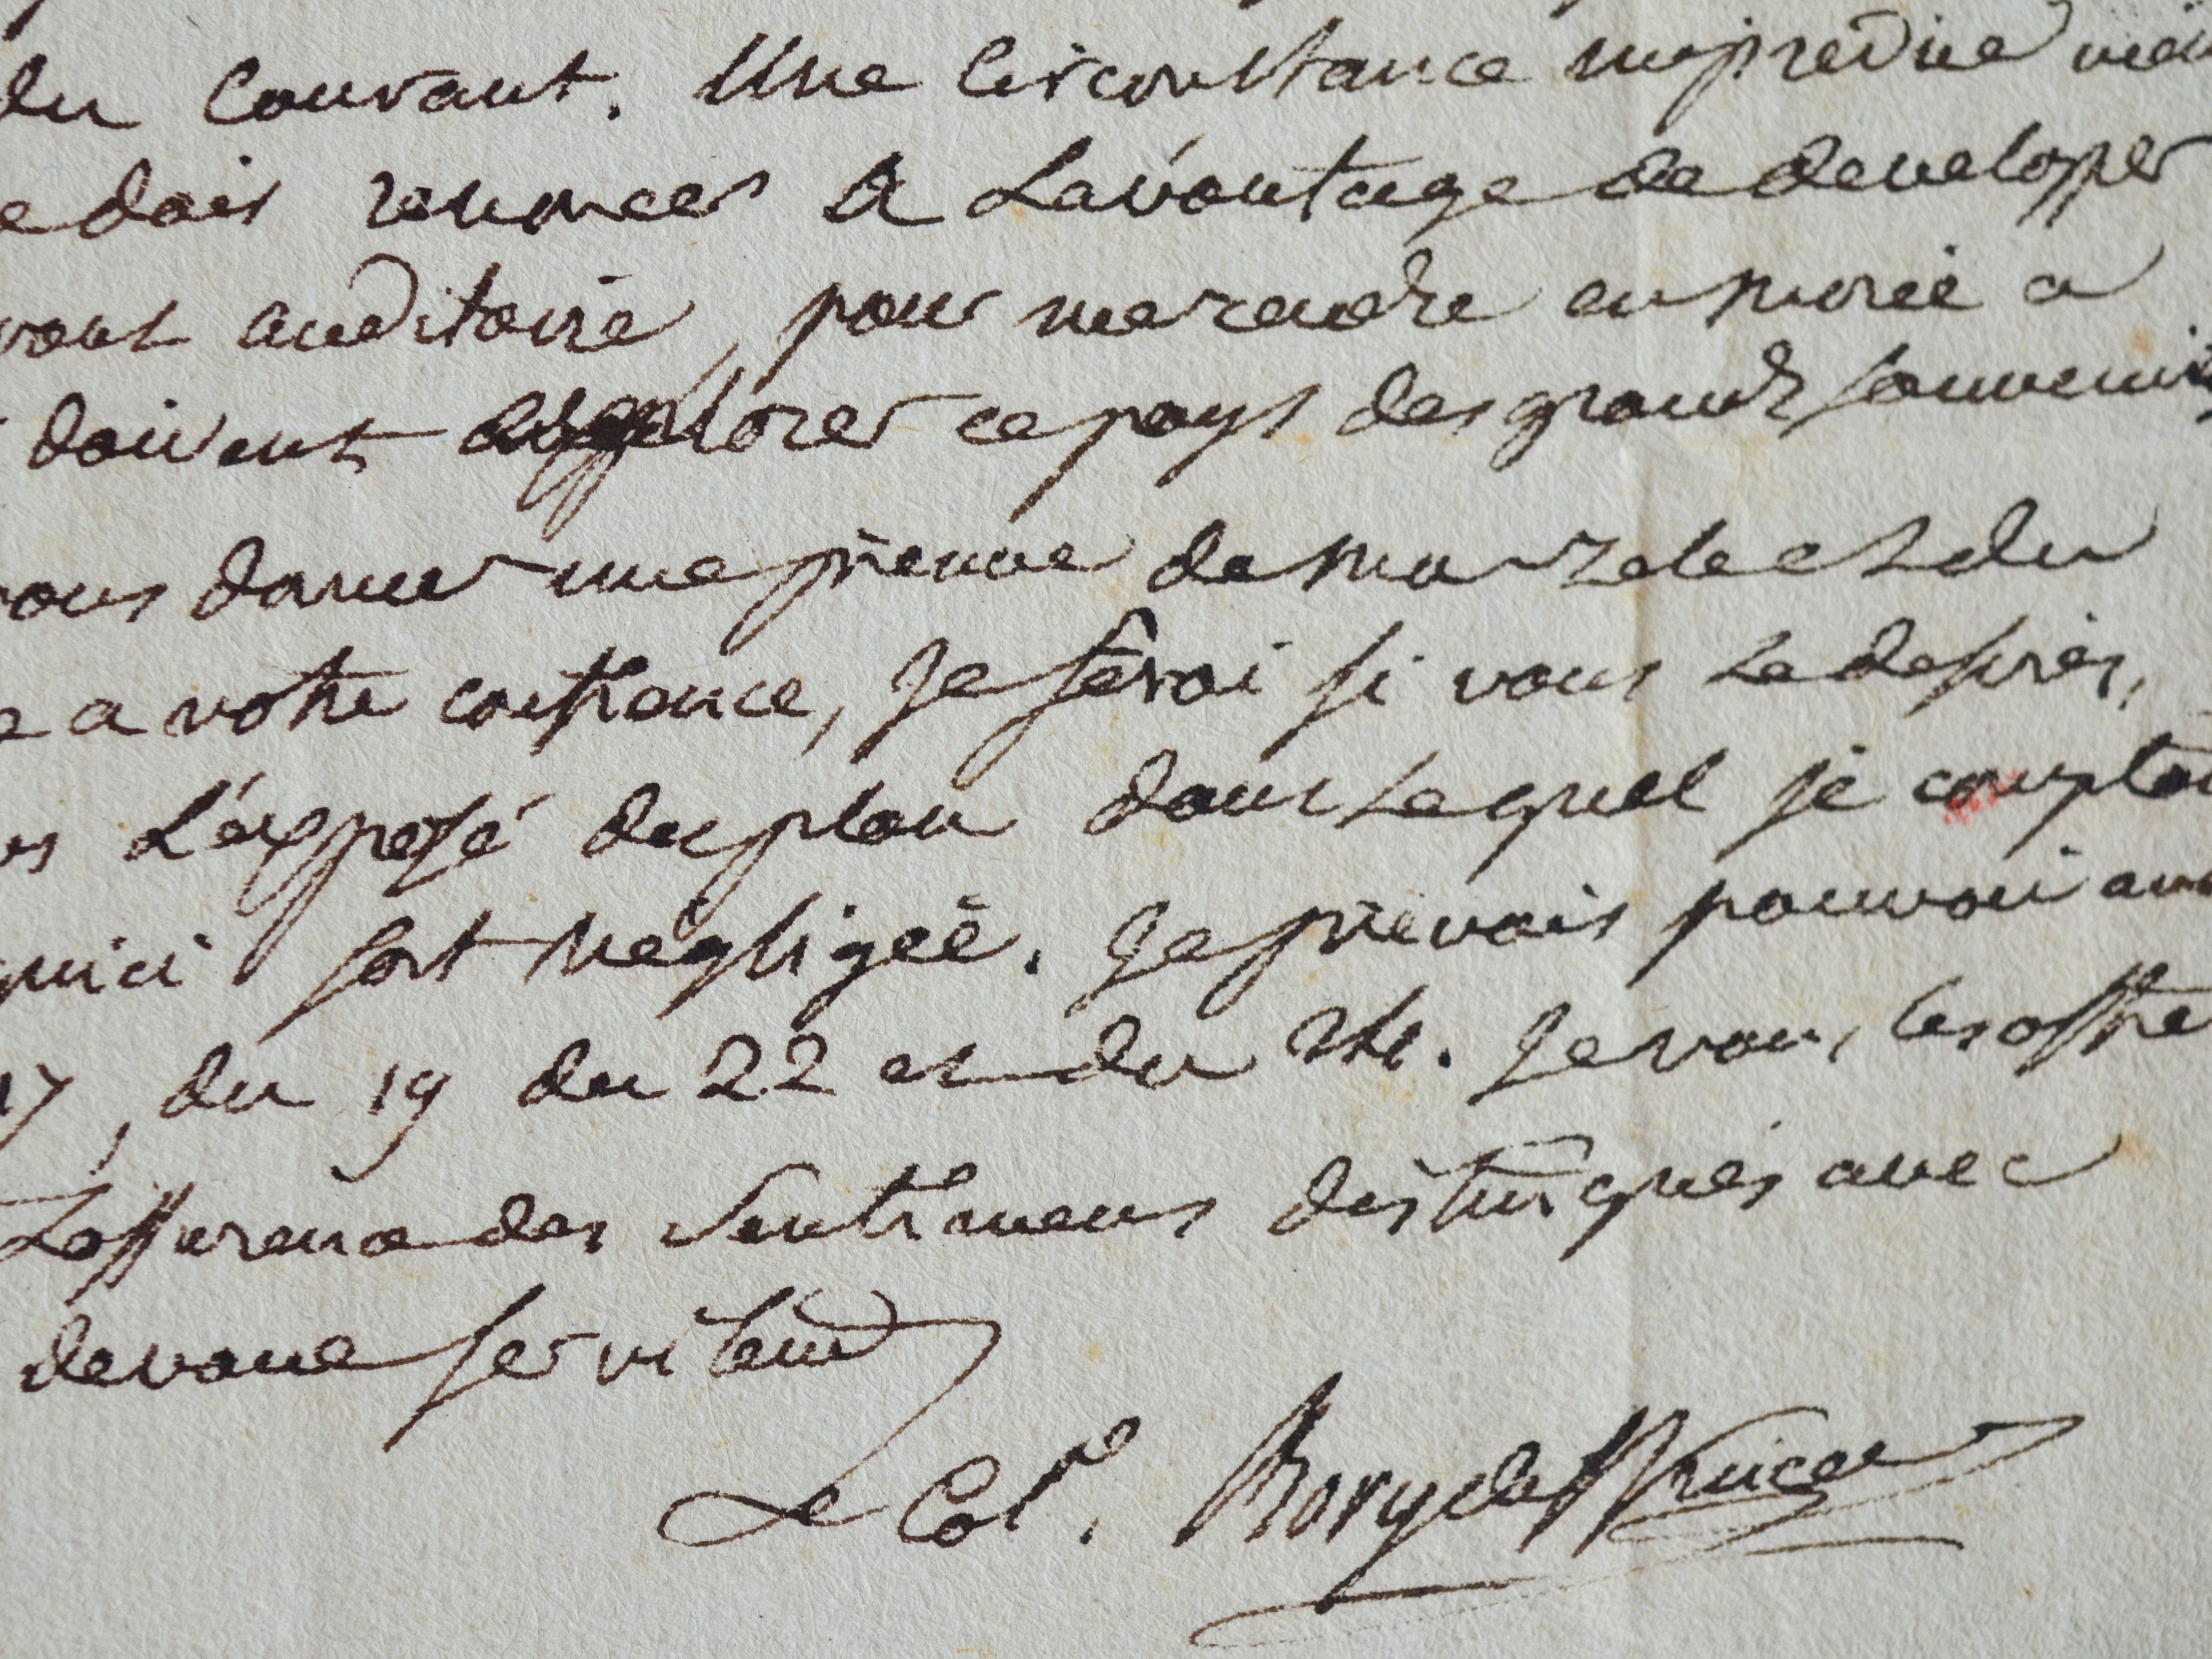 du Courant. Une Circonstance imprevue
dois renoncer a Lavantage de developper
auditoire, pour me rendre en morée a
doivent explorer ce pays des grands souvenirs
donner une preuve de mon zele et du
a votre confiance, Je ferai si vous Le desirés,
L'exposé du plan dans Lequel je
fort négligée. Je prévois pouvoir
17, du 19 du 22 et du 24. Je vous les offre
Lassurance des Sentimens distingués avec
devoué serviteur
Le Col.el Bory de St Vincent